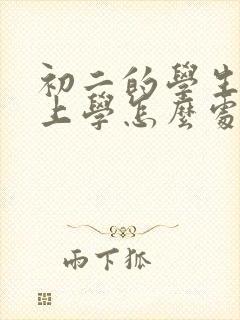 初二的學生
上學怎麼處
雨下狐